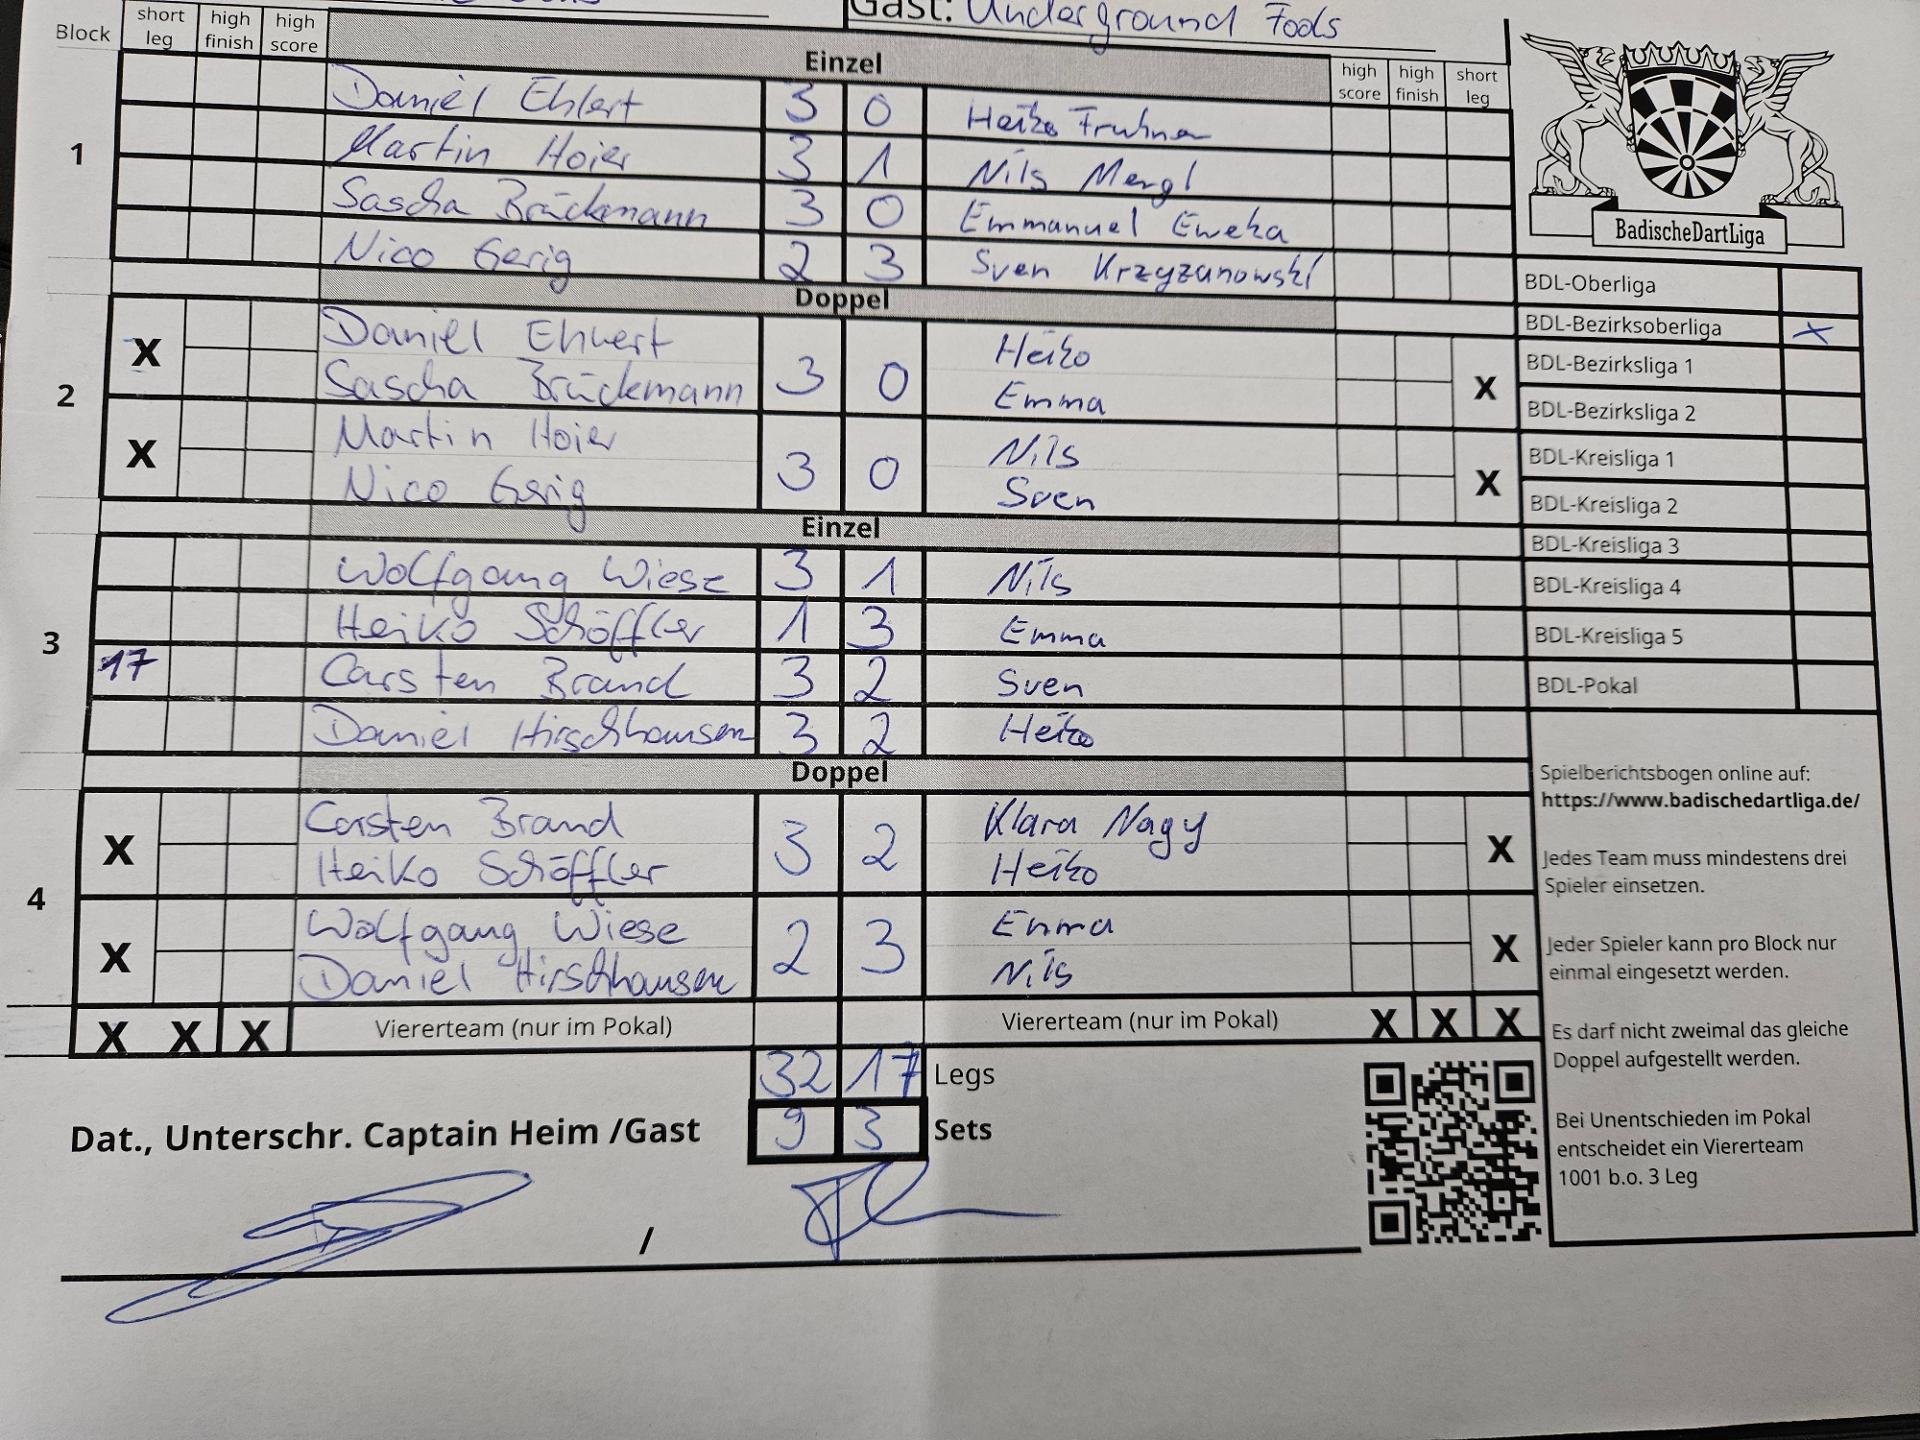 Gast: Underground Fools
Block short leg high finish high score Einzel high score high finish short leg
1
Daniel Ehlert 3 0 Heiko
Martin Hoier 3 1 Nils Mergl
Sascha Brückmann 3 0 Emmanuel Eweka
Nico Gerig 2 3 Sven Krzyzanowski
Doppel
2
X Daniel Ehlert 3 0 Heiko X
Sascha Brückmann Emma
X Martin Hoier 3 0 Nils X
Nico Gerig Sven
Einzel
3
Wolfgang Wiese 3 1 Nils
Heiko Schöffler 1 3 Emma
17 Carsten Brand 3 2 Sven
Daniel Hirschhausen 3 2 Heiko
Doppel
4
X Carsten Brand 3 2 Klara Nagy X
Heiko Schöffler Heiko
X Wolfgang Wiese 2 3 Emma X
Daniel Hirschhausen Nils
X X X Viererteam (nur im Pokal) Viererteam (nur im Pokal) X X X
32 17 Legs
Dat., Unterschr. Captain Heim /Gast 9 3 Sets
/
BadischeDartLiga
BDL-Oberliga
BDL-Bezirksoberliga X
BDL-Bezirksliga 1
BDL-Bezirksliga 2
BDL-Kreisliga 1
BDL-Kreisliga 2
BDL-Kreisliga 3
BDL-Kreisliga 4
BDL-Kreisliga 5
BDL-Pokal
Spielberichtsbogen online auf:
https://www.badischedartliga.de/
Jedes Team muss mindestens drei
Spieler einsetzen.
Jeder Spieler kann pro Block nur
einmal eingesetzt werden.
Es darf nicht zweimal das gleiche
Doppel aufgestellt werden.
Bei Unentschieden im Pokal
entscheidet ein Viererteam
1001 b.o. 3 Leg